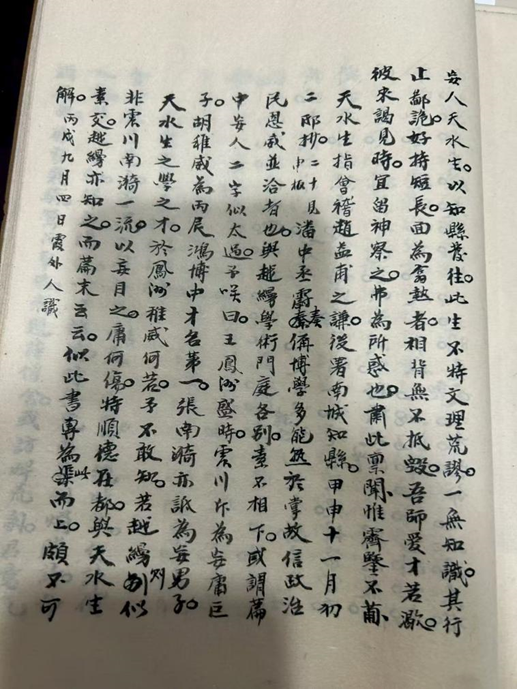 妄人天水生。以知縣發往。此生不特文理荒謬。一無知識。其行
止鄙詭。好持短長。面為翕熱者。相背無不抵毀。吾師愛才若渴。
彼來謁見時。宜留神察之。弗為所惑也。肅此稟聞。惟霽鑒不莆
天水生指會稽趙益甫之謙。後署南城知縣。甲申十一月初
二邸抄。二十見申報潘中丞霨奏偁博學多能。然於掌故信政治
民恩威並洽者也。與越縵學術門庭各別。素不相下。或謂篇
中妄人二字似太過。予咲曰。王鳳洲盛時。震川斥為妄庸巨
子。胡稚威為丙辰鴻博中才名第一。張南漪亦詆為妄男子。
天水生之學之才。於鳳洲稚威何若。予不敢知。若越縵則似
非震川南漪一流。以妄目之。庸何傷。特順德在都。與天水生
素交。越縵亦知之。而篇末云云。似此書專為渠而上。頗不可
解。丙戌九月四日霞外人識